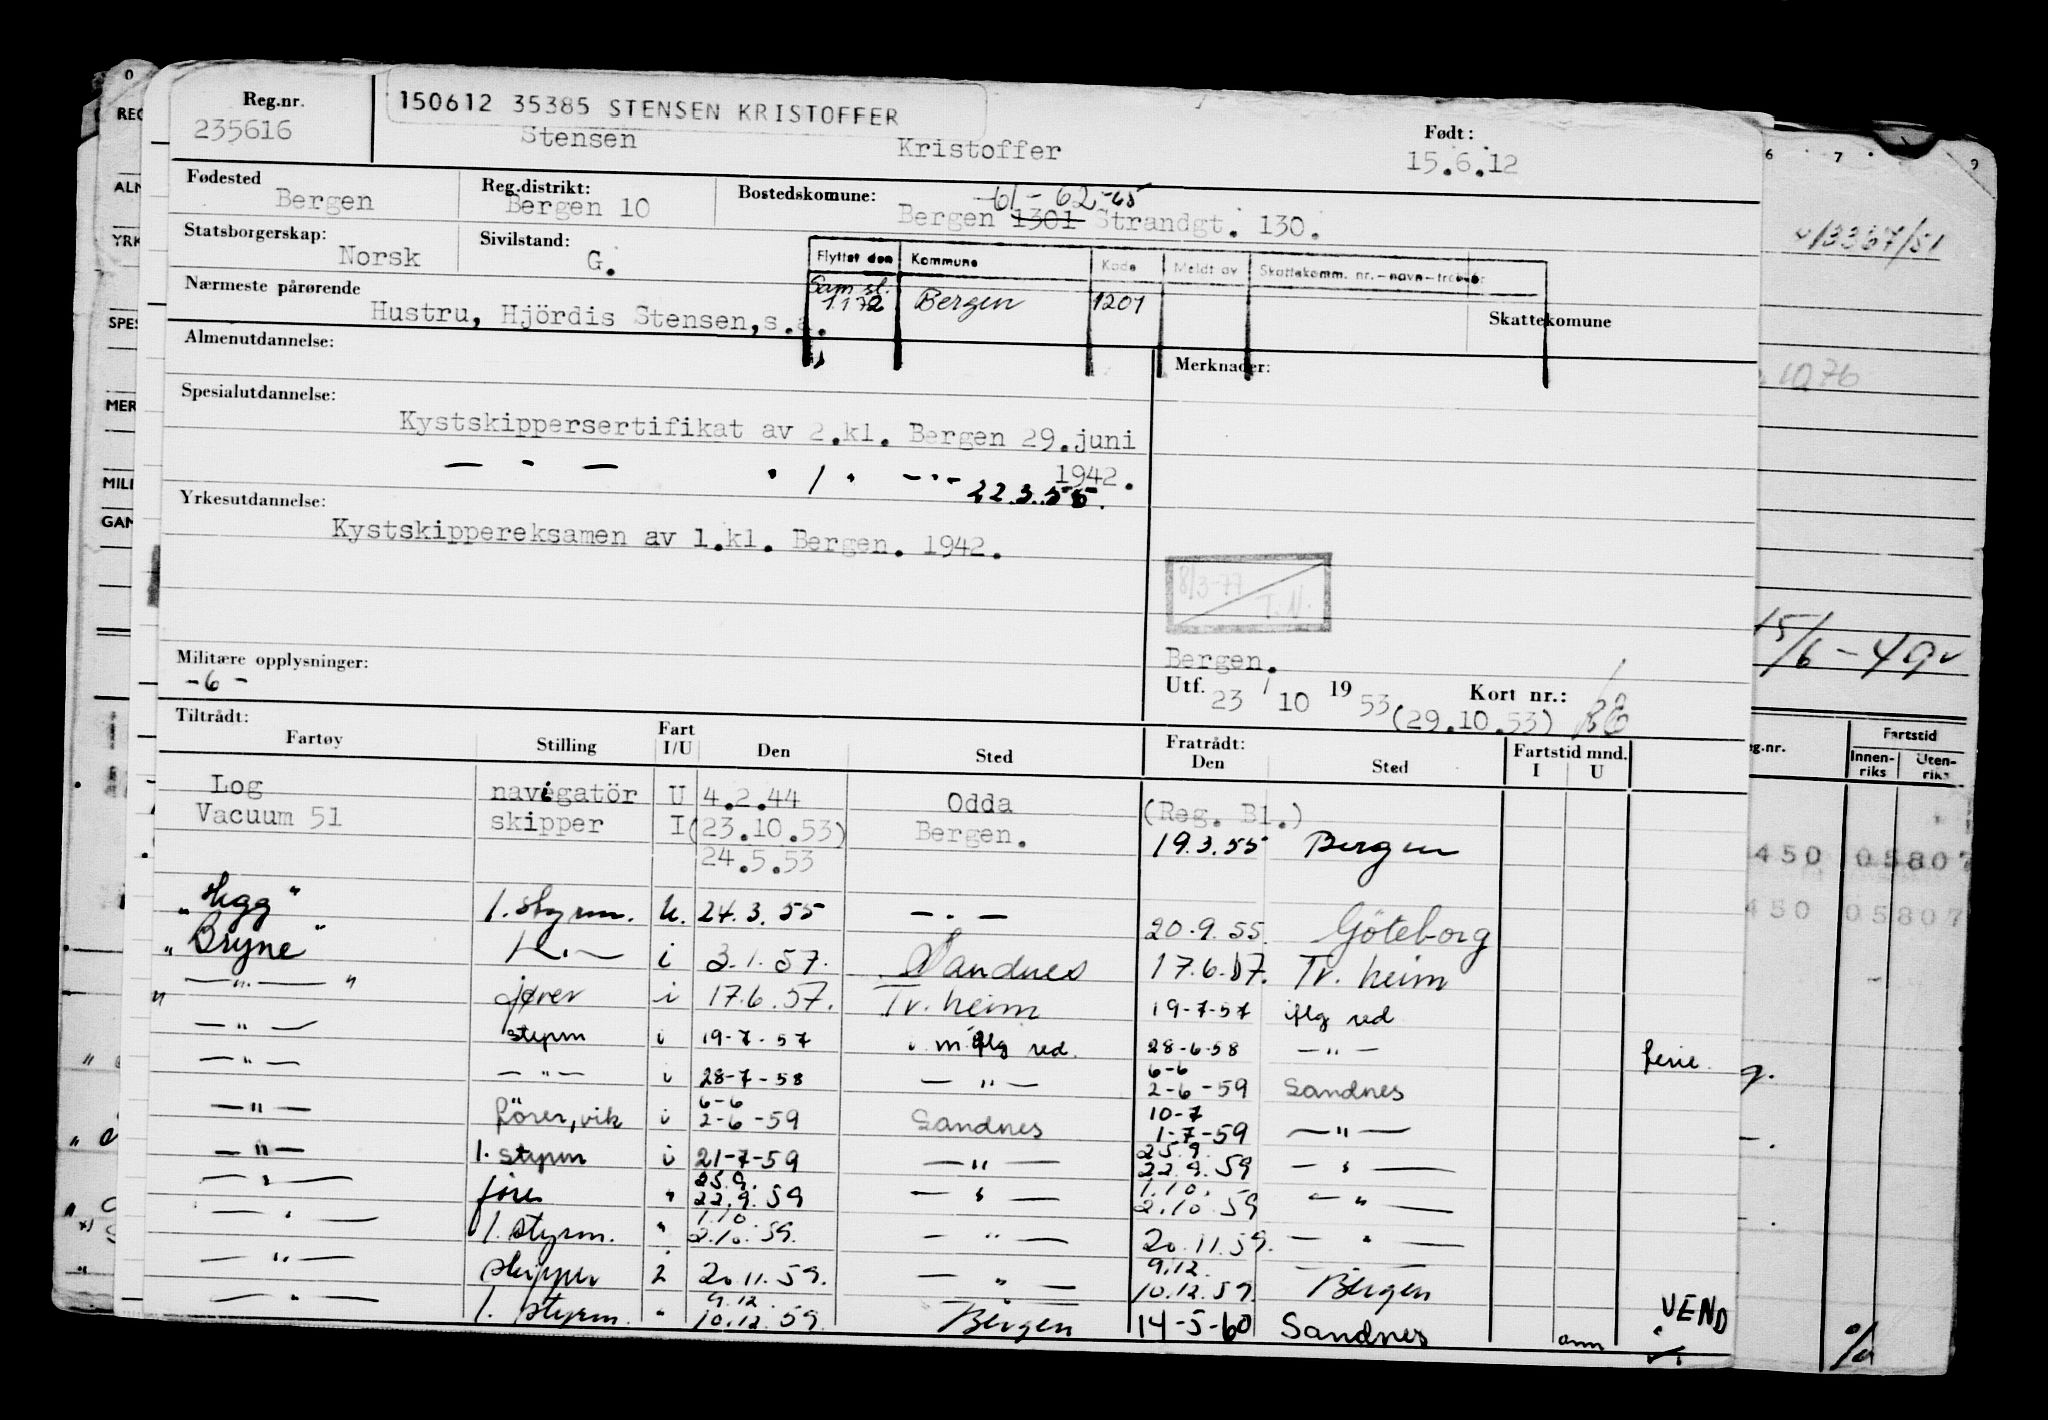 Reg.nr.
235616
150612 35385 STENSEN KRISTOFFER
Stensen Kristoffer
Født:
15.6.12
Fødested
Bergen
Reg.distrikt:
Bergen 10
Bostedskomune:
61-62-65
Bergen 1301 Strandgt. 130.
Statsborgerskap:
Norsk
Sivilstand:
G.
Flyttet den Kommune Kode Meldt av Skattekomm. nr.-navn-trekkr
Sam.sl.
1 1 72 Bergen 1201
Nærmeste pårørende
Hustru, Hjördis Stensen, s.a.
Skattekomune
Almenutdannelse:
Merknader:
Spesialutdannelse:
Kystskippersertifikat av 2.kl. Bergen 29.juni
1942.
— - — " 1 " —..— 22.3.55.
Yrkesutdannelse:
Kystskippereksamen av 1.kl. Bergen. 1942.
8/3-77
T.N.
Militære opplysninger:
-6-
Bergen.
Utf. 23 / 10 19 53 (29.10.53) Kort nr.:
Tiltrådt: Fratrådt:
Fartøy Stilling Fart I/U Den Sted Den Sted Fartstid mnd. I U
Log navigatör U 4.2.44 Odda (Reg. Bl.)
Vacuum 51 skipper I (23.10.53) Bergen. 19.3.55 Bergen
24.5.53
"Hegg" 1. styrm. U. 24.3.55 — . — 20.9.55. Göteborg
"Bryne" 1 — . — i 3.1.57. Sandnes 17.6.57. Tr. heim
" — " — " fører i 17.6.57. Tr. heim 19-7-57 iflg red
— " — styrm i 19-7-57 iflg red. 28-6-58 — " — ferie.
— " — — " — i 28-7-58 — " — 6-6 2-6-59 Sandnes
— " — förer, vik i 6-6 2-6-59 Sandnes 10-7 1-7-59 — " —
— " — 1. styrm i 21-7-59 — " — 25.9. 22.9.59 — " —
— " — fører " 25.9. 22.9.59 — " — 1.10. 2.10.59 — " —
— " — 1. styrm. " 1.10 2.10.59. — " — 20.11.59. — " —
— " — skipper i 20.11.59. — " — 9.12. 10.12.59. Bergen
— " — 1. styrm. " 9.12. 10.12.59. Bergen 14-5-60 Sandnes ann
VEND
REG
ALM
YRK
SPES
MER
MILI
GAM
6 7 9
13367/51
1076
15/6-49
g.nr.
Fartstid
Innen-riks Uten-riks
450 05807
450 05807